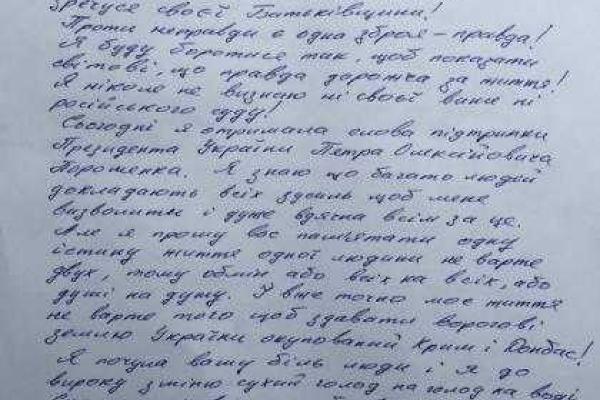 зречусе своєї Батьківщини!
Проти неправди є одна зброя – правда!
Я буду боротися так, щоб показати
світові, що правда дорожча за життя!
Я ніколе не визнаю ні своєї вини ні
російського суду!
Сьогодні я отримала слова підтримки
Президента України Петра Олексійовича
Порошенка. Я знаю що багато людей
докладають всіх зусиль щоб мене
визволити і дуже вдячна всім за це.
Але я прошу вас памʼятати одну
істину життя одної людини не варте
двух, тому обмін або всіх на всіх, або
душі на душу. І вже точно моє життя
не варте того щоб здавати ворогові
землю України окупований Крим і Донбас!
Я почула вашу біль люди і я до
вироку зміню сухий голод на голод на воді